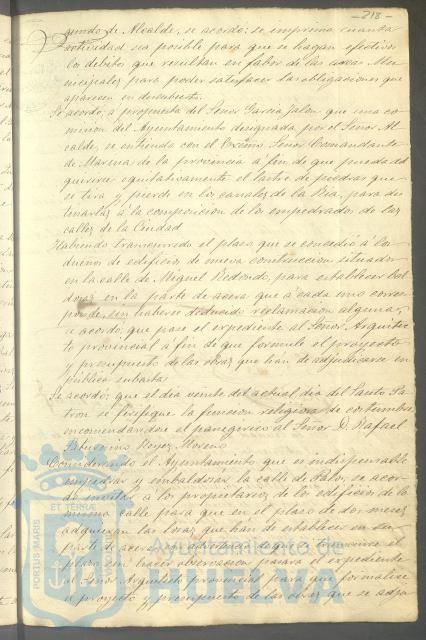 -218-
gundo de Alcalde, se acordó: se imprima cuanta
actividad sea posible para que se hagan efectivos
los debitos que resultan en fabor de las arcas Mu-
nicipales para poder satisfacer las obligaciones que
aparecen en descubierto.
Se acordó, á propuesta del Señor García Jalon que una co-
mision del Ayuntamiento designada por el Señor Al-
calde, se entienda con el Excmo. Señor Comandante
de Marina de la provincia á fin de que pueda ad-
quirirse equitativamente el lastre de piedras que
se tira y pierde en los canales de la Ria, para des-
tinarlas á la composicion de los empedrados de las
calles de la Ciudad
Habiendo transcurrido el plazo que se concedió á los
dueños de edificios de nueva construccion situados
en la calle de Miguel Redondo, para establecer bal-
dosas en la parte de acera que á cada uno corres-
ponde, sin haberse deducido reclamacion alguna,
se acordó: que pase el expediente al Señor Arquitec-
to provincial á fin de que formule el proyecto
y presupuesto de las obras que han de adjudicarse en
pública subasta
Se acordó: que el dia veinte del actual, dia del Santo Pa-
tron se verifique la funcion religiosa de costumbre
encomendandose el panegirico al Señor D. Rafael
Moreno
Considerando el Ayuntamiento que es indispensable
empedrar y embaldosar la calle de Palos, se acor-
dó invitar á los propietarios de los edificios de la
misma calle para que en el plazo de dos meses
adquieran las losas que han de establecer en su
parte de acera,
plazo sin hacer observacion pasará el expediente
al Señor Arquitecto provincial para que formalice
el proyecto y presupuesto de las obras que se adju-
PORTUS MARIS
ET TERRÆ
Ayuntamiento de
HUELVA